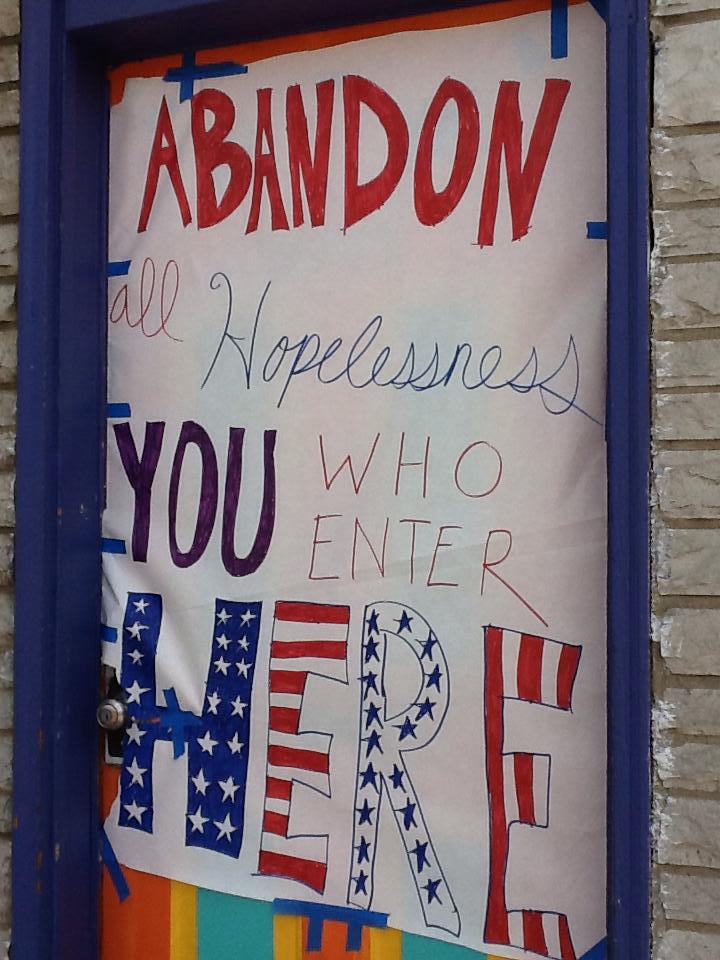 ABANDON
all Hopelessness
YOU WHO
ENTER
HERE